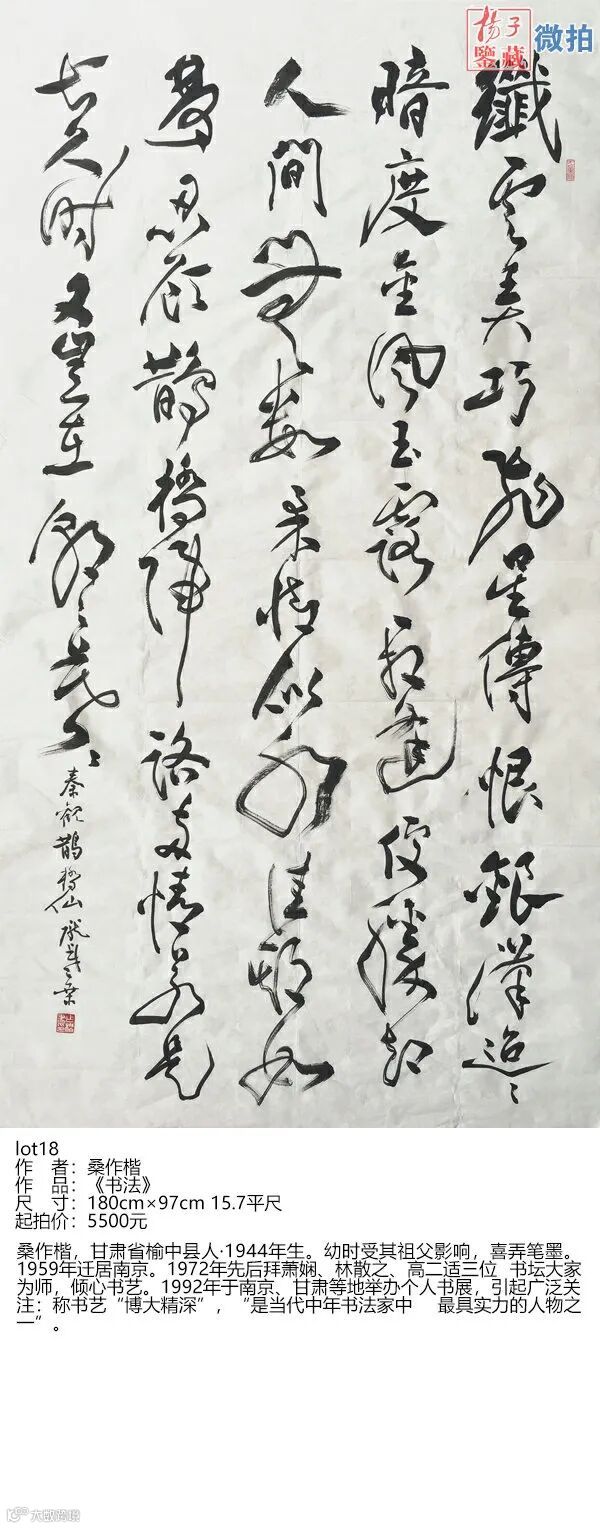 揚子
鑒藏
微拍
纖雲弄巧飛星傳恨銀漢迢〻
暗度金風玉露一相逢便勝卻
人間無數柔情似水佳期如
夢忍顧鵲橋歸路兩情若是
久時又豈在朝〻暮〻
秦觀鵲橋仙
lot18
作 者：桑作楷
作 品：《书法》
尺 寸：180cm×97cm 15.7平尺
起拍价：5500元
桑作楷，甘肃省榆中县人·1944年生。幼时受其祖父影响，喜弄笔墨。
1959年迁居南京。1972年先后拜萧娴、林散之、高二适三位 书坛大家
为师，倾心书艺。1992年于南京、甘肃等地举办个人书展，引起广泛关
注：称书艺“博大精深”，“是当代中年书法家中 最具实力的人物之
一”。
大数跨境